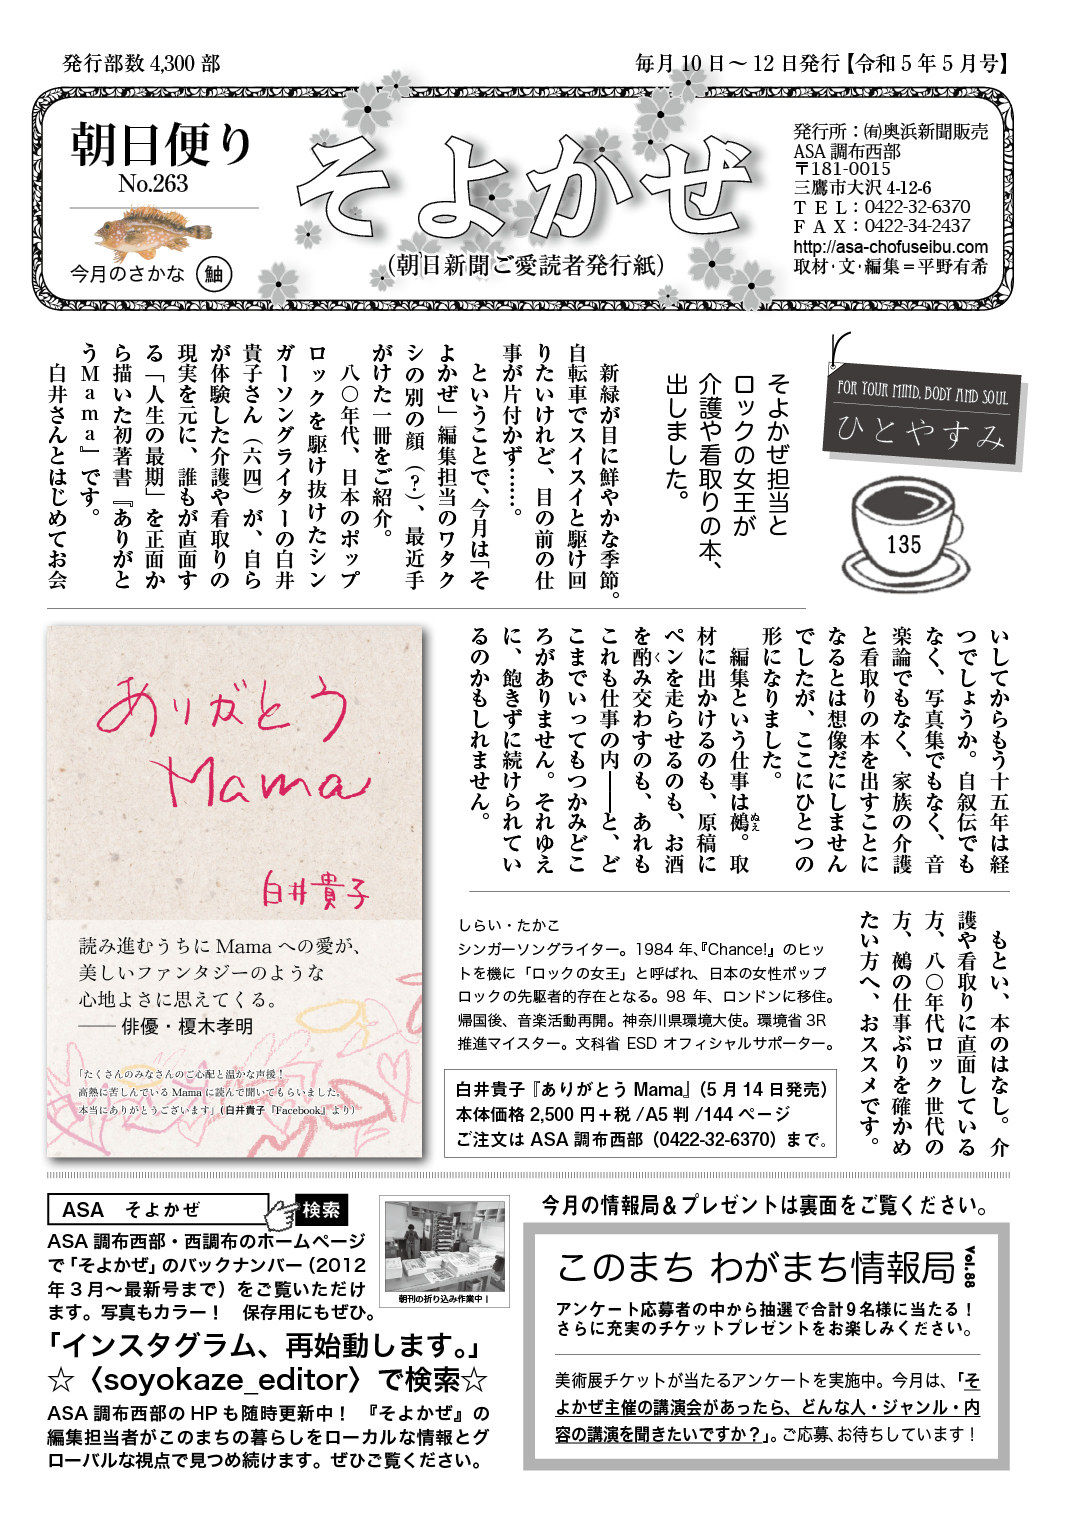 発行部数 4,300 部
毎月 10 日～ 12 日発行【令和 5 年 5 月号】
朝日便り
No.263
今月のさかな 鮋
そよかぜ
（朝日新聞ご愛読者発行紙）
発行所：㈲奥浜新聞販売
ASA 調布西部
〒181-0015
三鷹市大沢 4-12-6
ＴＥＬ：0422-32-6370
ＦＡＸ：0422-34-2437
http://asa-chofuseibu.com
取材･文･編集＝平野有希
FOR YOUR MIND, BODY AND SOUL
ひとやすみ
135
そよかぜ担当と
ロックの女王が
介護や看取りの本、
出しました。
新緑が目に鮮やかな季節。
自転車でスイスイと駆け回
りたいけれど、目の前の仕
事が片付かず……。
ということで、今月は「そ
よかぜ」編集担当のワタク
シの別の顔（？）、最近手
がけた一冊をご紹介。
八〇年代、日本のポップ
ロックを駆け抜けたシン
ガーソングライターの白井
貴子さん（六四）が、自ら
が体験した介護や看取りの
現実を元に、誰もが直面す
る「人生の最期」を正面か
ら描いた初著書『ありがと
うＭａｍａ』です。
白井さんとはじめてお会
いしてからもう十五年は経
つでしょうか。自叙伝でも
なく、写真集でもなく、音
楽論でもなく、家族の介護
と看取りの本を出すことに
なるとは想像だにしません
でしたが、ここにひとつの
形になりました。
編集という仕事は鵺。取
ぬえ
材に出かけるのも、原稿に
ペンを走らせるのも、お酒
を酌み交わすのも、あれも
く
これも仕事の内――と、ど
こまでいってもつかみどこ
ろがありません。それゆえ
に、飽きずに続けられてい
るのかもしれません。
もとい、本のはなし。介
護や看取りに直面している
方、八〇年代ロック世代の
方、鵺の仕事ぶりを確かめ
たい方へ、おススメです。
ありがとう
Mama
白井貴子
読み進むうちに Mama への愛が、
美しいファンタジーのような
心地よさに思えてくる。
―― 俳優・榎木孝明
「たくさんのみなさんのご心配と温かな声援！
高熱に苦しんでいる Mama に読んで聞いてもらいました。
本当にありがとうございます」（白井貴子「Facebook」より）
しらい・たかこ
シンガーソングライター。1984 年、『Chance!』のヒッ
トを機に「ロックの女王」と呼ばれ、日本の女性ポップ
ロックの先駆者的存在となる。98 年、ロンドンに移住。
帰国後、音楽活動再開。神奈川県環境大使。環境省 3R
推進マイスター。文科省 ESD オフィシャルサポーター。
白井貴子『ありがとう Mama』（5 月 14 日発売）
本体価格 2,500 円＋税 /A5 判 /144 ページ
ご注文は ASA 調布西部（0422-32-6370）まで。
ASA　そよかぜ
検索
ASA 調布西部・西調布のホームページ
で「そよかぜ」のバックナンバー（2012
年 3 月～最新号まで）をご覧いただけ
ます。写真もカラー！　保存用にもぜひ。
朝刊の折り込み作業中！
「インスタグラム、再始動します。」
☆〈soyokaze_editor〉で検索☆
ASA 調布西部の HP も随時更新中！　『そよかぜ』の
編集担当者がこのまちの暮らしをローカルな情報とグ
ローバルな視点で見つめ続けます。ぜひご覧ください。
今月の情報局＆プレゼントは裏面をご覧ください。
このまち わがまち情報局 Vol.88
アンケート応募者の中から抽選で合計９名様に当たる！
さらに充実のチケットプレゼントをお楽しみください。
美術展チケットが当たるアンケートを実施中。今月は、「そ
よかぜ主催の講演会があったら、どんな人・ジャンル・内
容の講演を聞きたいですか？」。ご応募、お待ちしています！